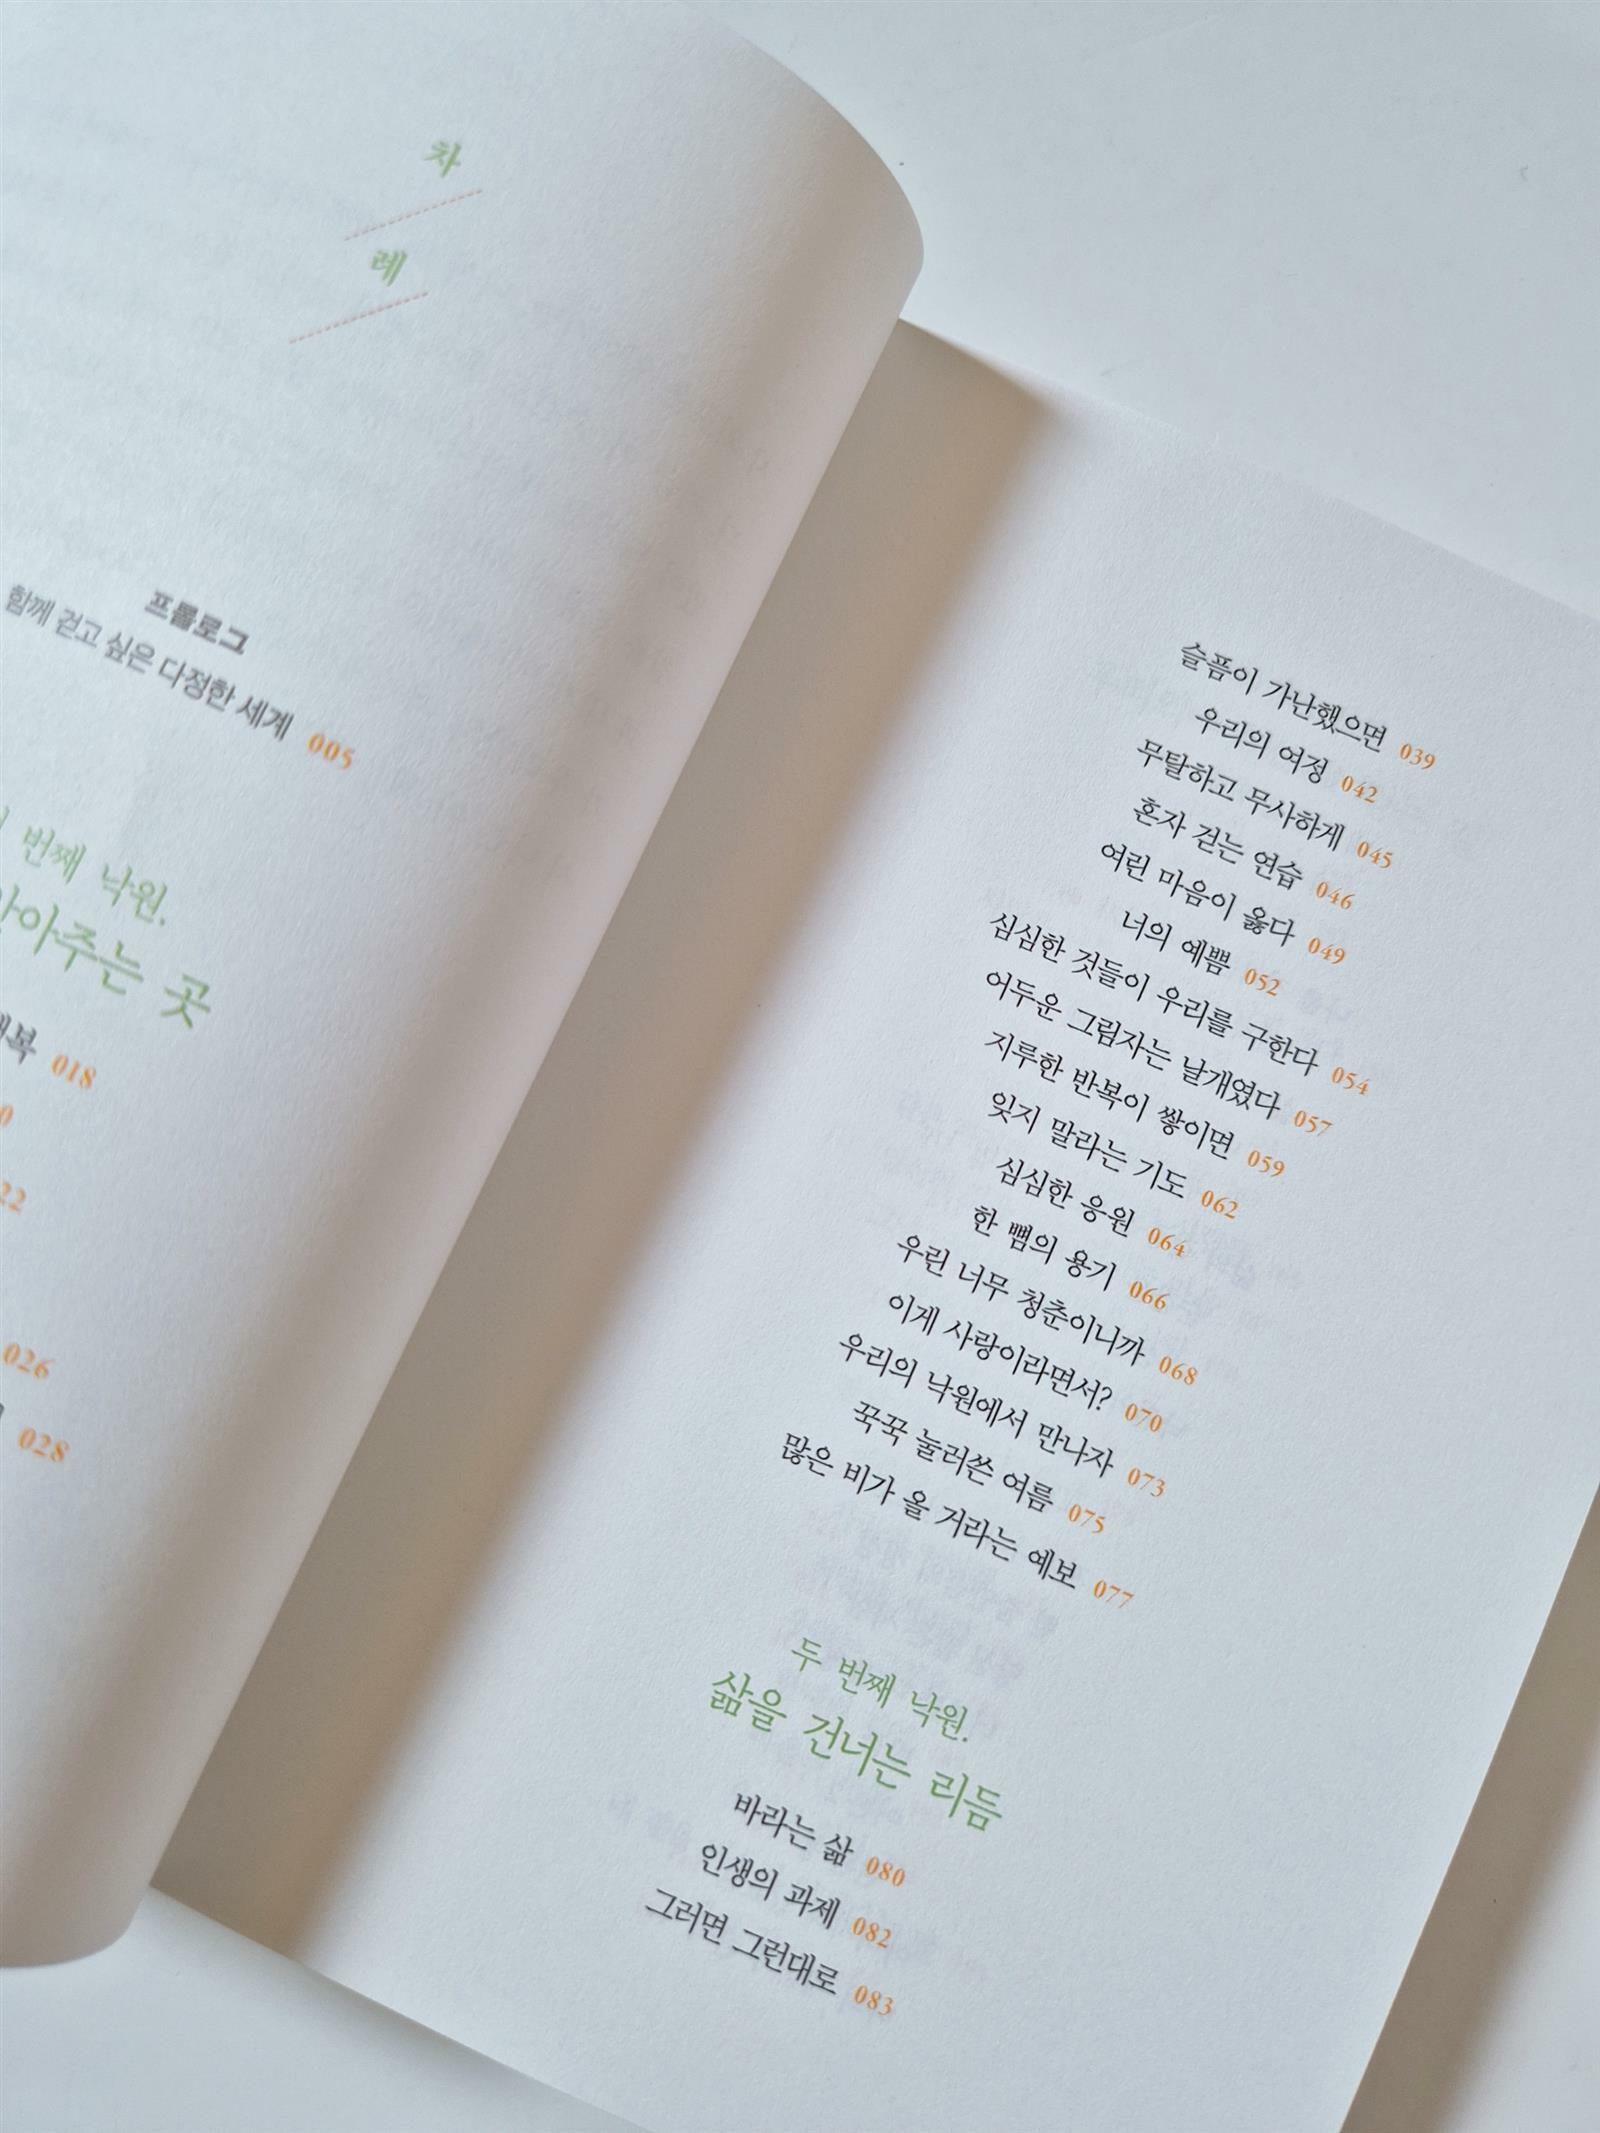 차
례
프롤로그
함께 걷고 싶은 다정한 세계 005
번째 낙원.
곳
018
22
026
028
슬픔이 가난했으면 039
우리의 여정 042
무탈하고 무사하게 045
혼자 걷는 연습 046
여린 마음이 옳다 049
너의 예쁨 052
심심한 것들이 우리를 구한다 054
어두운 그림자는 날개였다 057
지루한 반복이 쌓이면 059
잊지 말라는 기도 062
심심한 응원 064
한 뼘의 용기 066
우린 너무 청춘이니까 068
이게 사랑이라면서? 070
우리의 낙원에서 만나자 073
꾹꾹 눌러쓴 여름 075
많은 비가 올 거라는 예보 077
두 번째 낙원.
삶을 건너는 리듬
바라는 삶 080
인생의 과제 082
그러면 그런대로 083